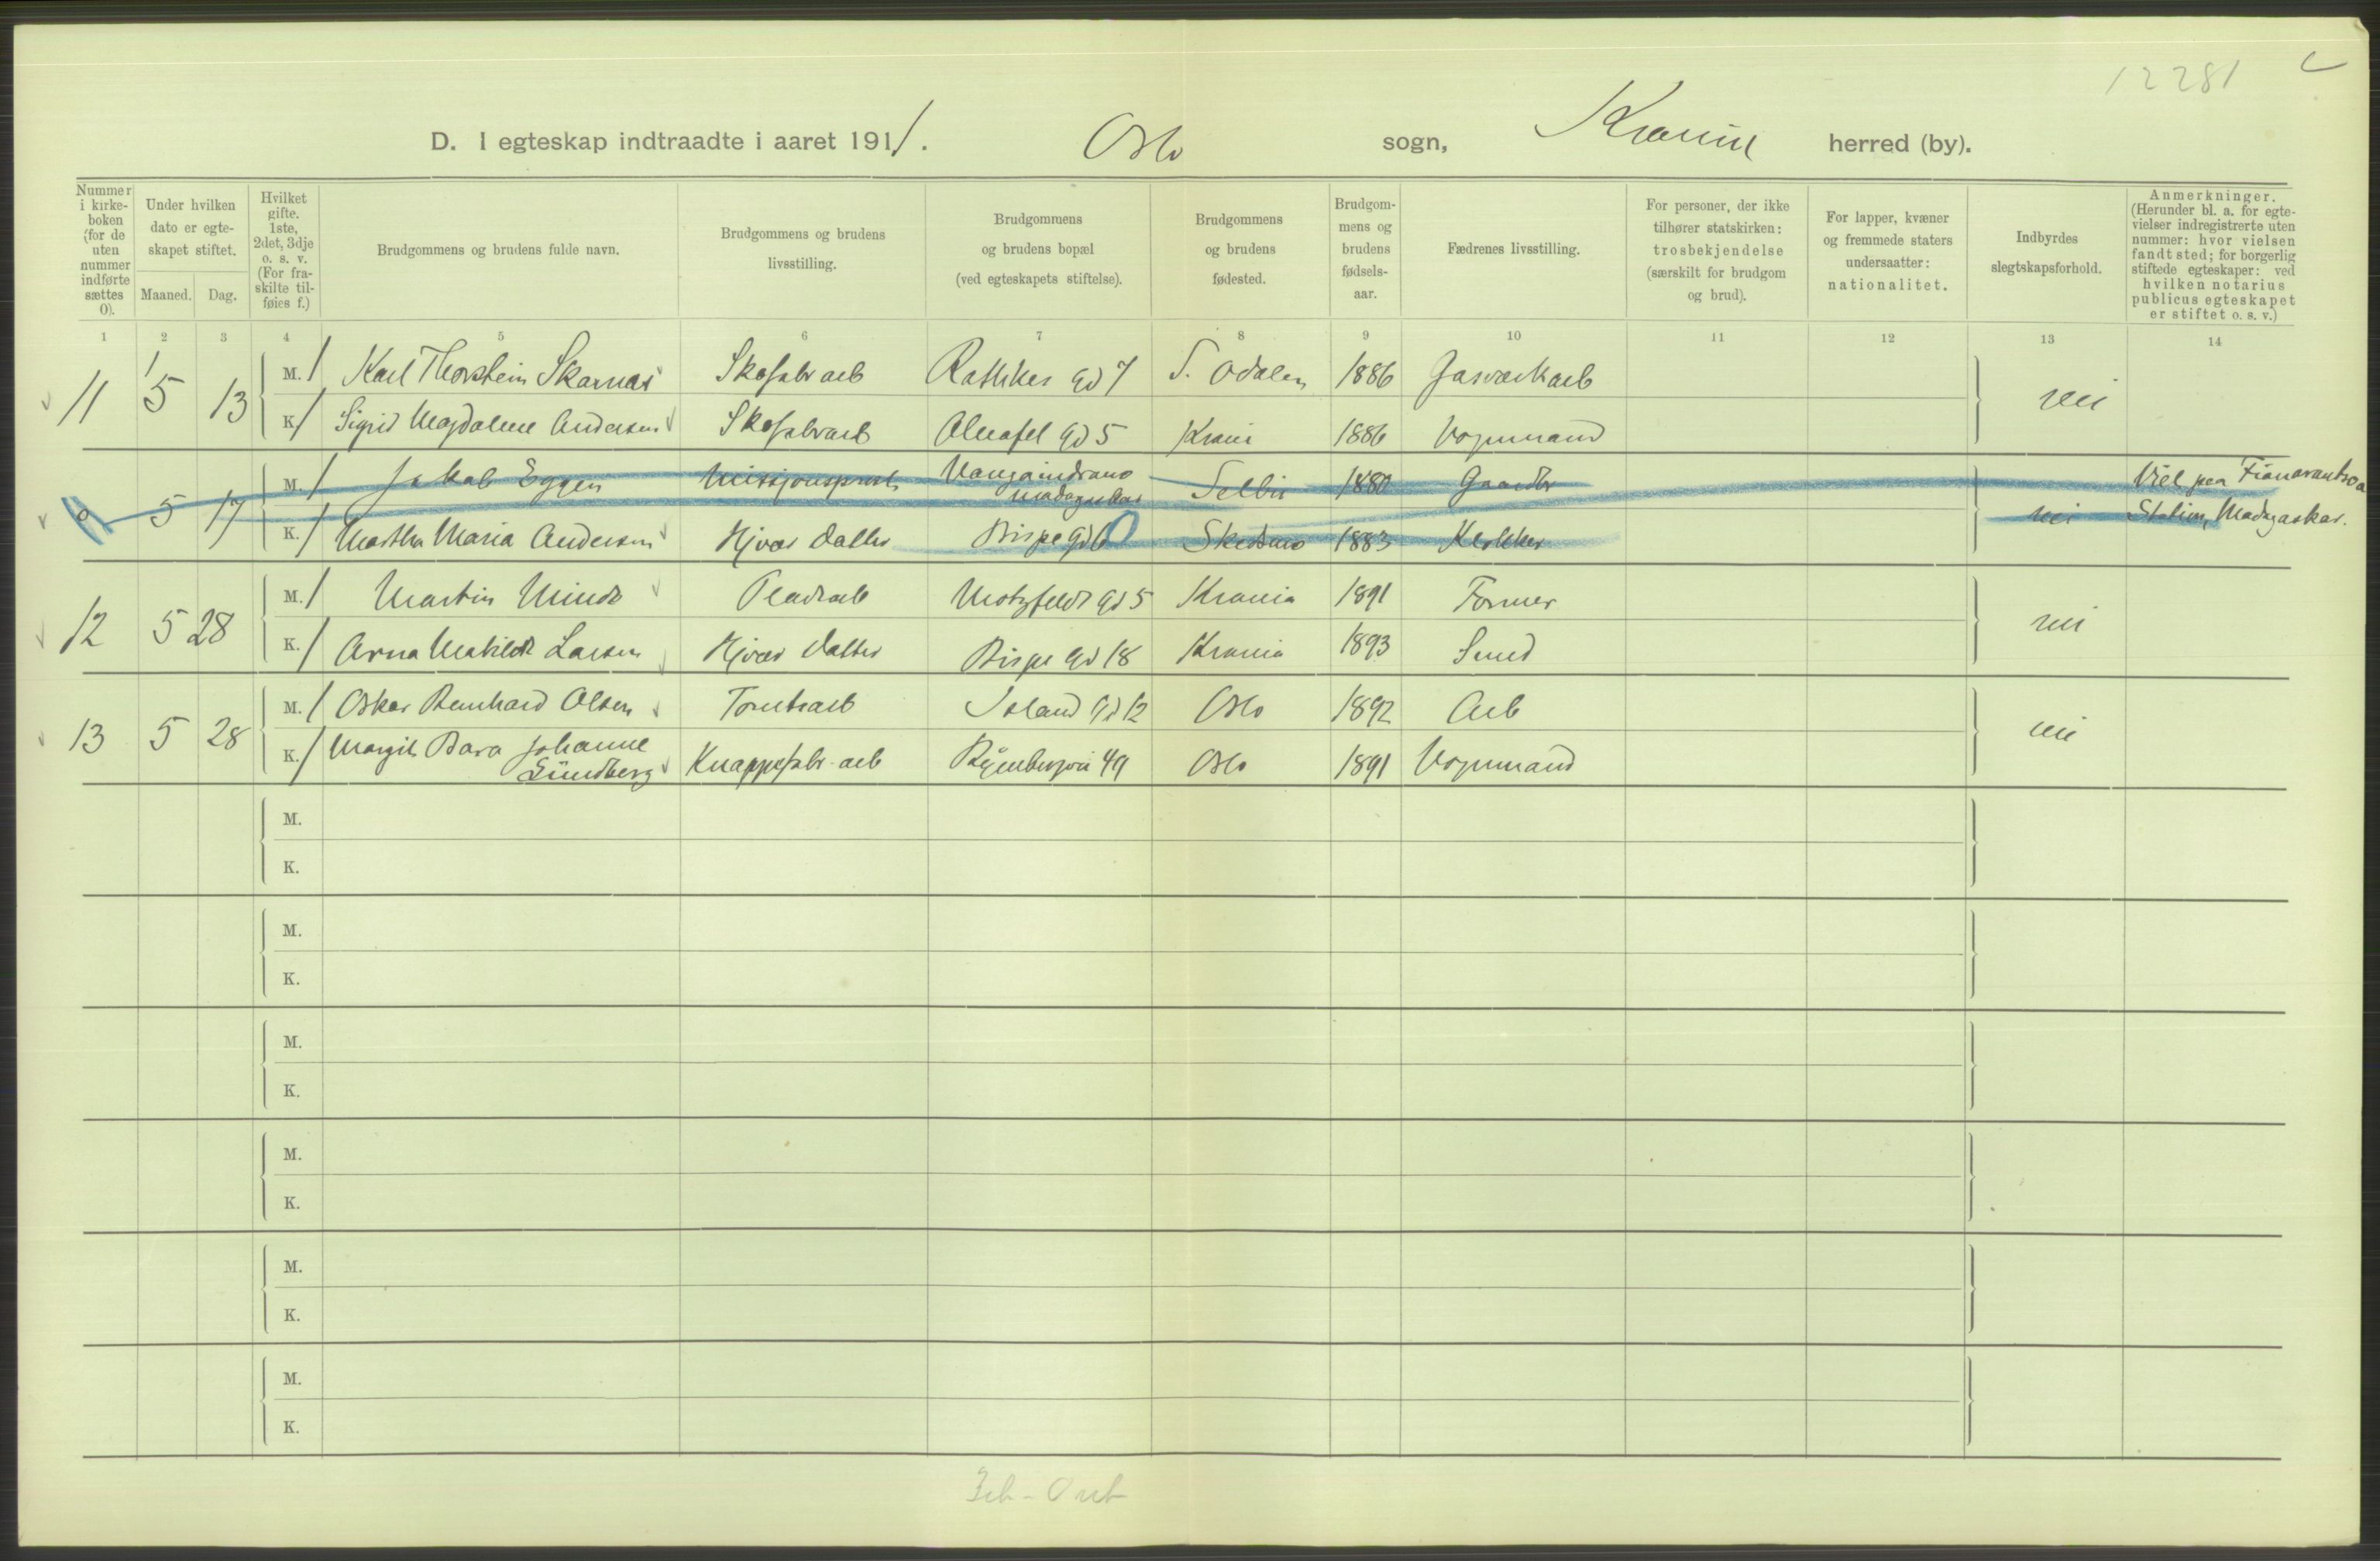 12281
D. I egteskap indtraadte i aaret 1911. Oslo sogn, Krania herred (by).
Nummer i kirkeboken (for de uten nummer indførte sættes 0).
Under hvilken dato er egteskapet stiftet.
Maaned. Dag.
Hvilket gifte. 1ste, 2det, 3dje o. s. v. (For fraskilte tilføies f.)
Brudgommens og brudens fulde navn.
Brudgommens og brudens livsstilling.
Brudgommens og brudens bopæl (ved egteskapets stiftelse).
Brudgommens og brudens fødested.
Brudgommens og brudens fødselsaar.
Fædrenes livsstilling.
For personer, der ikke tilhører statskirken: trosbekjendelse (særskilt for brudgom og brud).
For lapper, kvæner og fremmede staters undersaatter: nationalitet.
Indbyrdes slegtskapsforhold.
Anmerkninger. (Herunder bl. a. for egtevielser indregistrerte uten nummer: hvor vielsen fandt sted; for borgerlig stiftede egteskaper: ved hvilken notarius publicus egteskapet er stiftet o. s. v.)
1 2 3 4 5 6 7 8 9 10 11 12 13 14
11 5 13 M. 1 Karl Thorstein Skarnas Skofabr arb Rathkes gd 7 S. Odalen 1886 Gasværkarb nei
K. 1 Sigrid Magdalene Andersen Skofabrarb Almafel gd 5 Krania 1886 Vognmand
0 5 17 M. 1 Jakob Eggen Missjonsprest Vangaindrano Madagaskar Selbu 1880 Gaardbr nei Viet paa Fianarantsoa Station, Madagaskar.
K. 1 Martha Maria Andersen Hjvær datter Bispe gd Skedsmo 1883 Klokker
12 5 28 M. 1 Martin Minde Pladearb Motzfeldt gd 5 Krania 1891 Former nei
K. 1 Arna Mathilde Larsen Hjvær datter Bispe gd 18 Krania 1893 Smed
13 5 28 M. 1 Oskar Bernhard Olsen Tomtearb Island gd 12 Oslo 1892 Arb nei
K. 1 Margit Bara Johanne Lündberg Knappefabr. arb Ryenbergvei 49 Oslo 1891 Vognmand
M.
K.
M.
K.
M.
K.
M.
K.
M.
K.
M.
K.